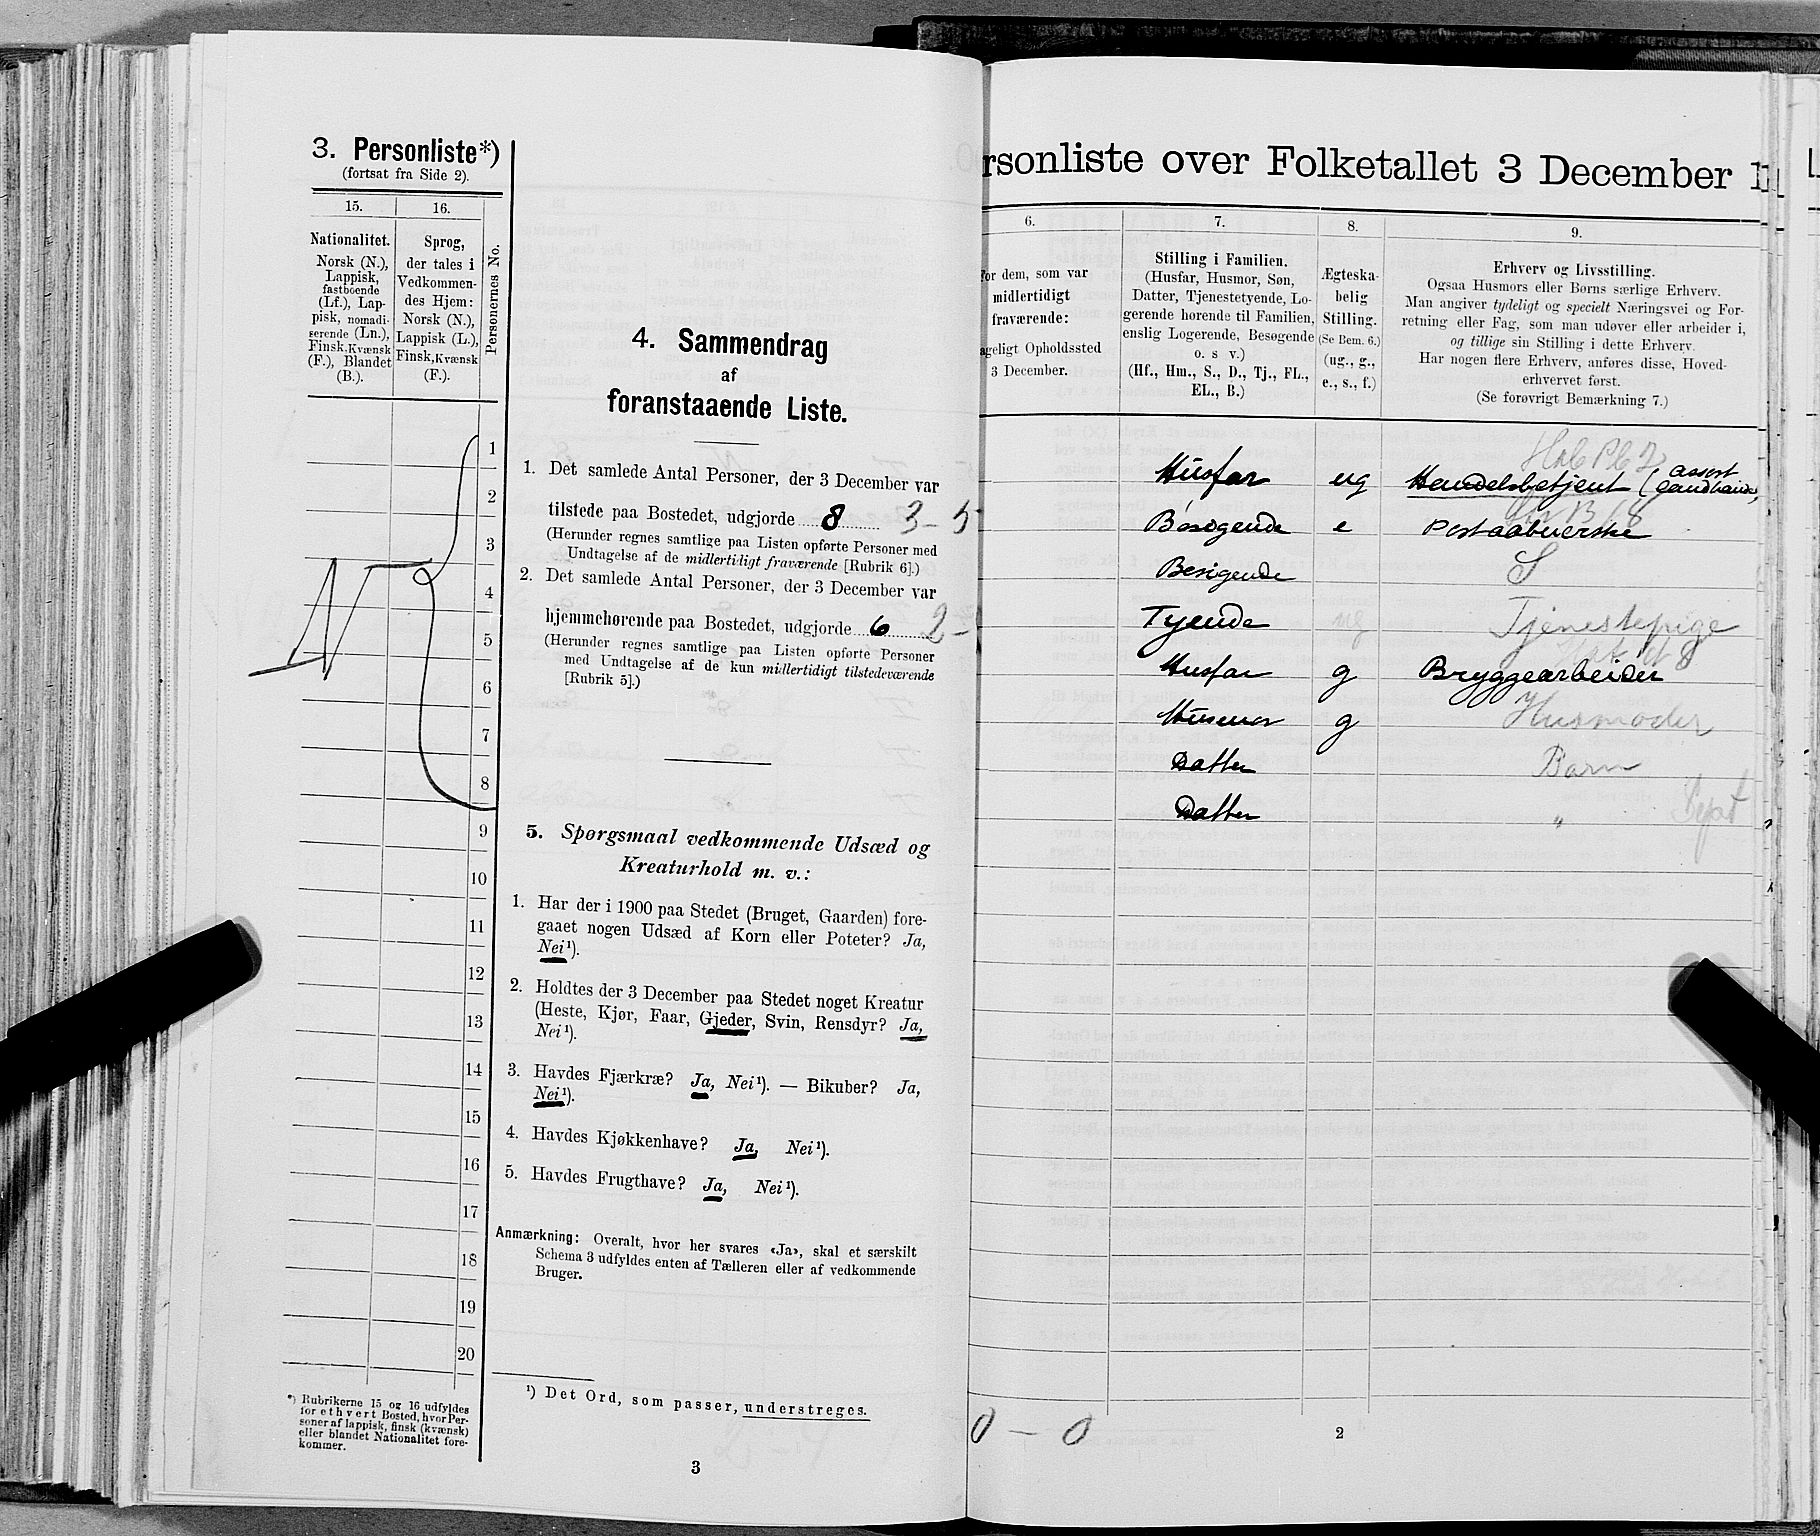 3. Personliste*)
(fortsat fra Side 2).
15.
16.
Personernes No.
Nationalitet.
Norsk (N.),
Lappisk,
fastboende
(Lf.), Lap-
pisk, nomadi-
serende (Ln.),
Finsk, Kvænsk
(F.), Blandet
(B.).
Sprog,
der tales i
Vedkommen-
des Hjem:
Norsk (N.),
Lappisk (L.),
Finsk, Kvænsk
(F.).
N
1
2
3
4
5
6
7
8
9
10
11
12
13
14
15
16
17
18
19
20
*) Rubrikerne 15 og 16 udfyldes
for ethvert Bosted, hvor Per-
soner af lappisk, finsk (kvænsk)
eller blandet Nationalitet fore-
kommer.
4. Sammendrag
af
foranstaaende Liste.
1. Det samlede Antal Personer, der 3 December var
tilstede paa Bostedet, udgjorde 8 3-5
(Herunder regnes samtlige paa Listen opførte Personer med
Undtagelse af de midlertidigt fraværende [Rubrik 6].)
2. Det samlede Antal Personer, der 3 December var
hjemmehørende paa Bostedet, udgjorde 6 2-
(Herunder regnes samtlige paa Listen opførte Personer
med Undtagelse af de kun midlertidigt tilstedeværende
[Rubrik 5].)
5. Spørgsmaal vedkommende Udsæd og
Kreaturhold m. v.:
1. Har der i 1900 paa Stedet (Bruget, Gaarden) fore-
gaaet nogen Udsæd af Korn eller Poteter? Ja,
Nei¹).
2. Holdtes der 3 December paa Stedet noget Kreatur
(Heste, Kjør, Faar, Gjeder, Svin, Rensdyr? Ja,
Nei¹).
3. Havdes Fjærkræ? Ja, Nei¹). — Bikuber? Ja,
Nei¹).
4. Havdes Kjøkkenhave? Ja, Nei¹).
5. Havdes Frugthave? Ja, Nei¹).
Anmærkning: Overalt, hvor her svares «Ja», skal et særskilt
Schema 3 udfyldes enten af Tælleren eller af vedkommende
Bruger.
¹) Det Ord, som passer, understreges.
3
rsonliste over Folketallet 3 December 1
6.
7.
8.
9.
For dem, som var
midlertidigt
fraværende:
ageligt Opholdssted
3 December.
Stilling i Familien.
(Husfar, Husmor, Søn,
Datter, Tjenestetyende, Lo-
gerende hørende til Familien,
enslig Logerende, Besøgende
o. s v.)
(Hf., Hm., S., D., Tj., FL.,
EL., B.)
Ægteska-
belig
Stilling.
(Se Bem. 6.)
(ug., g.,
e., s., f.)
Erhverv og Livsstilling.
Ogsaa Husmors eller Børns særlige Erhverv.
Man angiver tydeligt og specielt Næringsvei og For-
retning eller Fag, som man udøver eller arbeider i,
og tillige sin Stilling i dette Erhverv.
Har nogen flere Erhverv, anføres disse, Hoved-
erhvervet først.
(Se forøvrigt Bemærkning 7.)
Husfar ug Handelsbetjent (assist Landhandel,
Besøgende e Postaabnerske
Besøgende S
Tyende ug Tjenestepige
Husfar g Bryggearbeider
Husmor g Husmoder
Datter Barn
Datter "
0 — 0
2